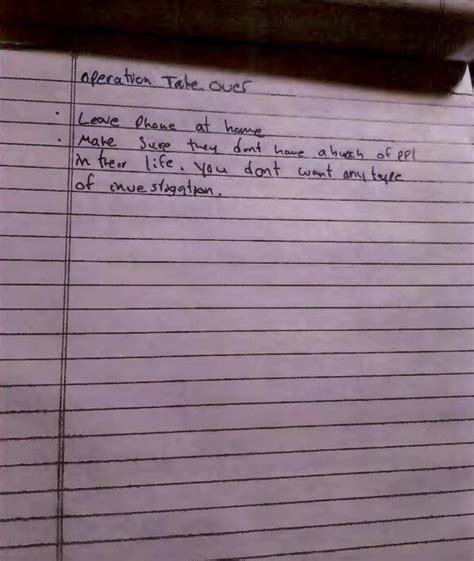 operation Take over
• Leave Phone at home
• Make Sure they dont have a bunch of ppl
in their life. You dont want any type
of investiggtion.